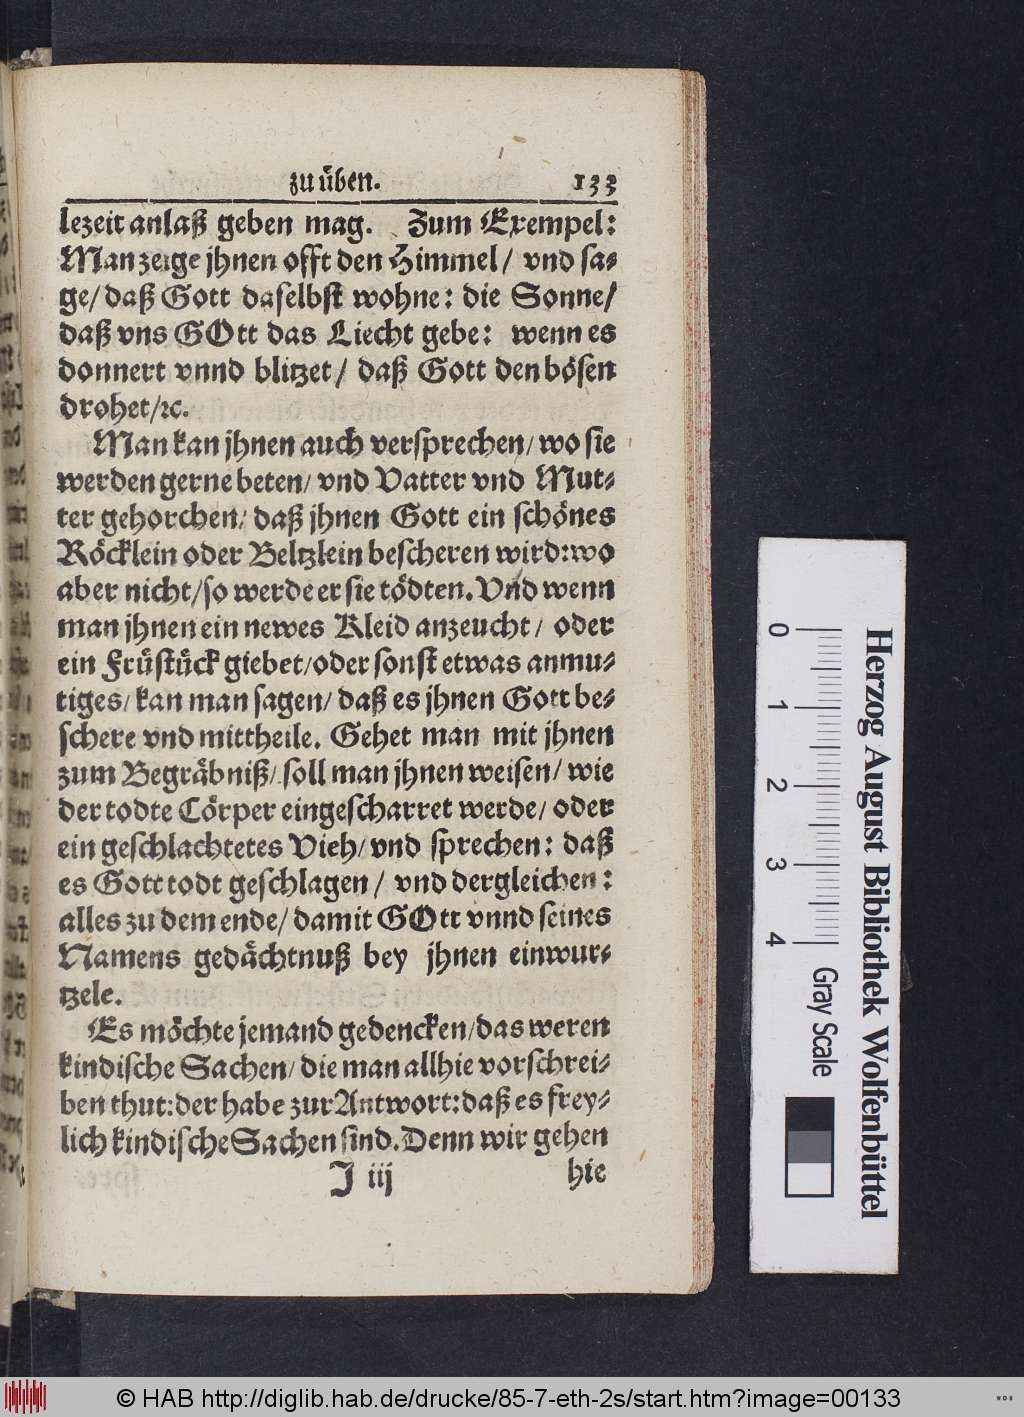 zu üben. 133
lezeit anlaß geben mag. Zum Exempel:
Man zeige jhnen offt den Himmel / vnd sa-
ge / daß Gott daselbst wohne: die Sonne /
daß vns GOtt das Liecht gebe: wenn es
donnert vnnd blitzet / daß Gott den bösen
drohet / ꝛc.
Man kan jhnen auch versprechen / wo sie
werden gerne beten / vnd Vatter vnd Mut-
ter gehorchen / daß jhnen Gott ein schönes
Röcklein oder Beltzlein bescheren wird: wo
aber nicht / so werde er sie tödten. Vnd wenn
man jhnen ein newes Kleid anzeucht / oder
ein Früstück giebet / oder sonst etwas anmu-
tiges / kan man sagen / daß es jhnen Gott be-
schere vnd mittheile. Gehet man mit jhnen
zum Begräbniß / soll man jhnen weisen / wie
der todte Cörper eingescharret werde / oder
ein geschlachtetes Vieh / vnd sprechen: daß
es Gott todt geschlagen / vnd dergleichen:
alles zu dem ende / damit GOtt vnnd seines
Namens gedächtnuß bey jhnen einwur-
tzele.
Es möchte jemand gedencken / das weren
kindische Sachen / die man allhie vorschrei-
ben thut: der habe zur Antwort: daß es frey-
lich kindische Sachen sind. Denn wir gehen
J iij hie
0 1 2 3 4 Gray Scale
Herzog August Bibliothek Wolfenbüttel
© HAB http://diglib.hab.de/drucke/85-7-eth-2s/start.htm?image=00133